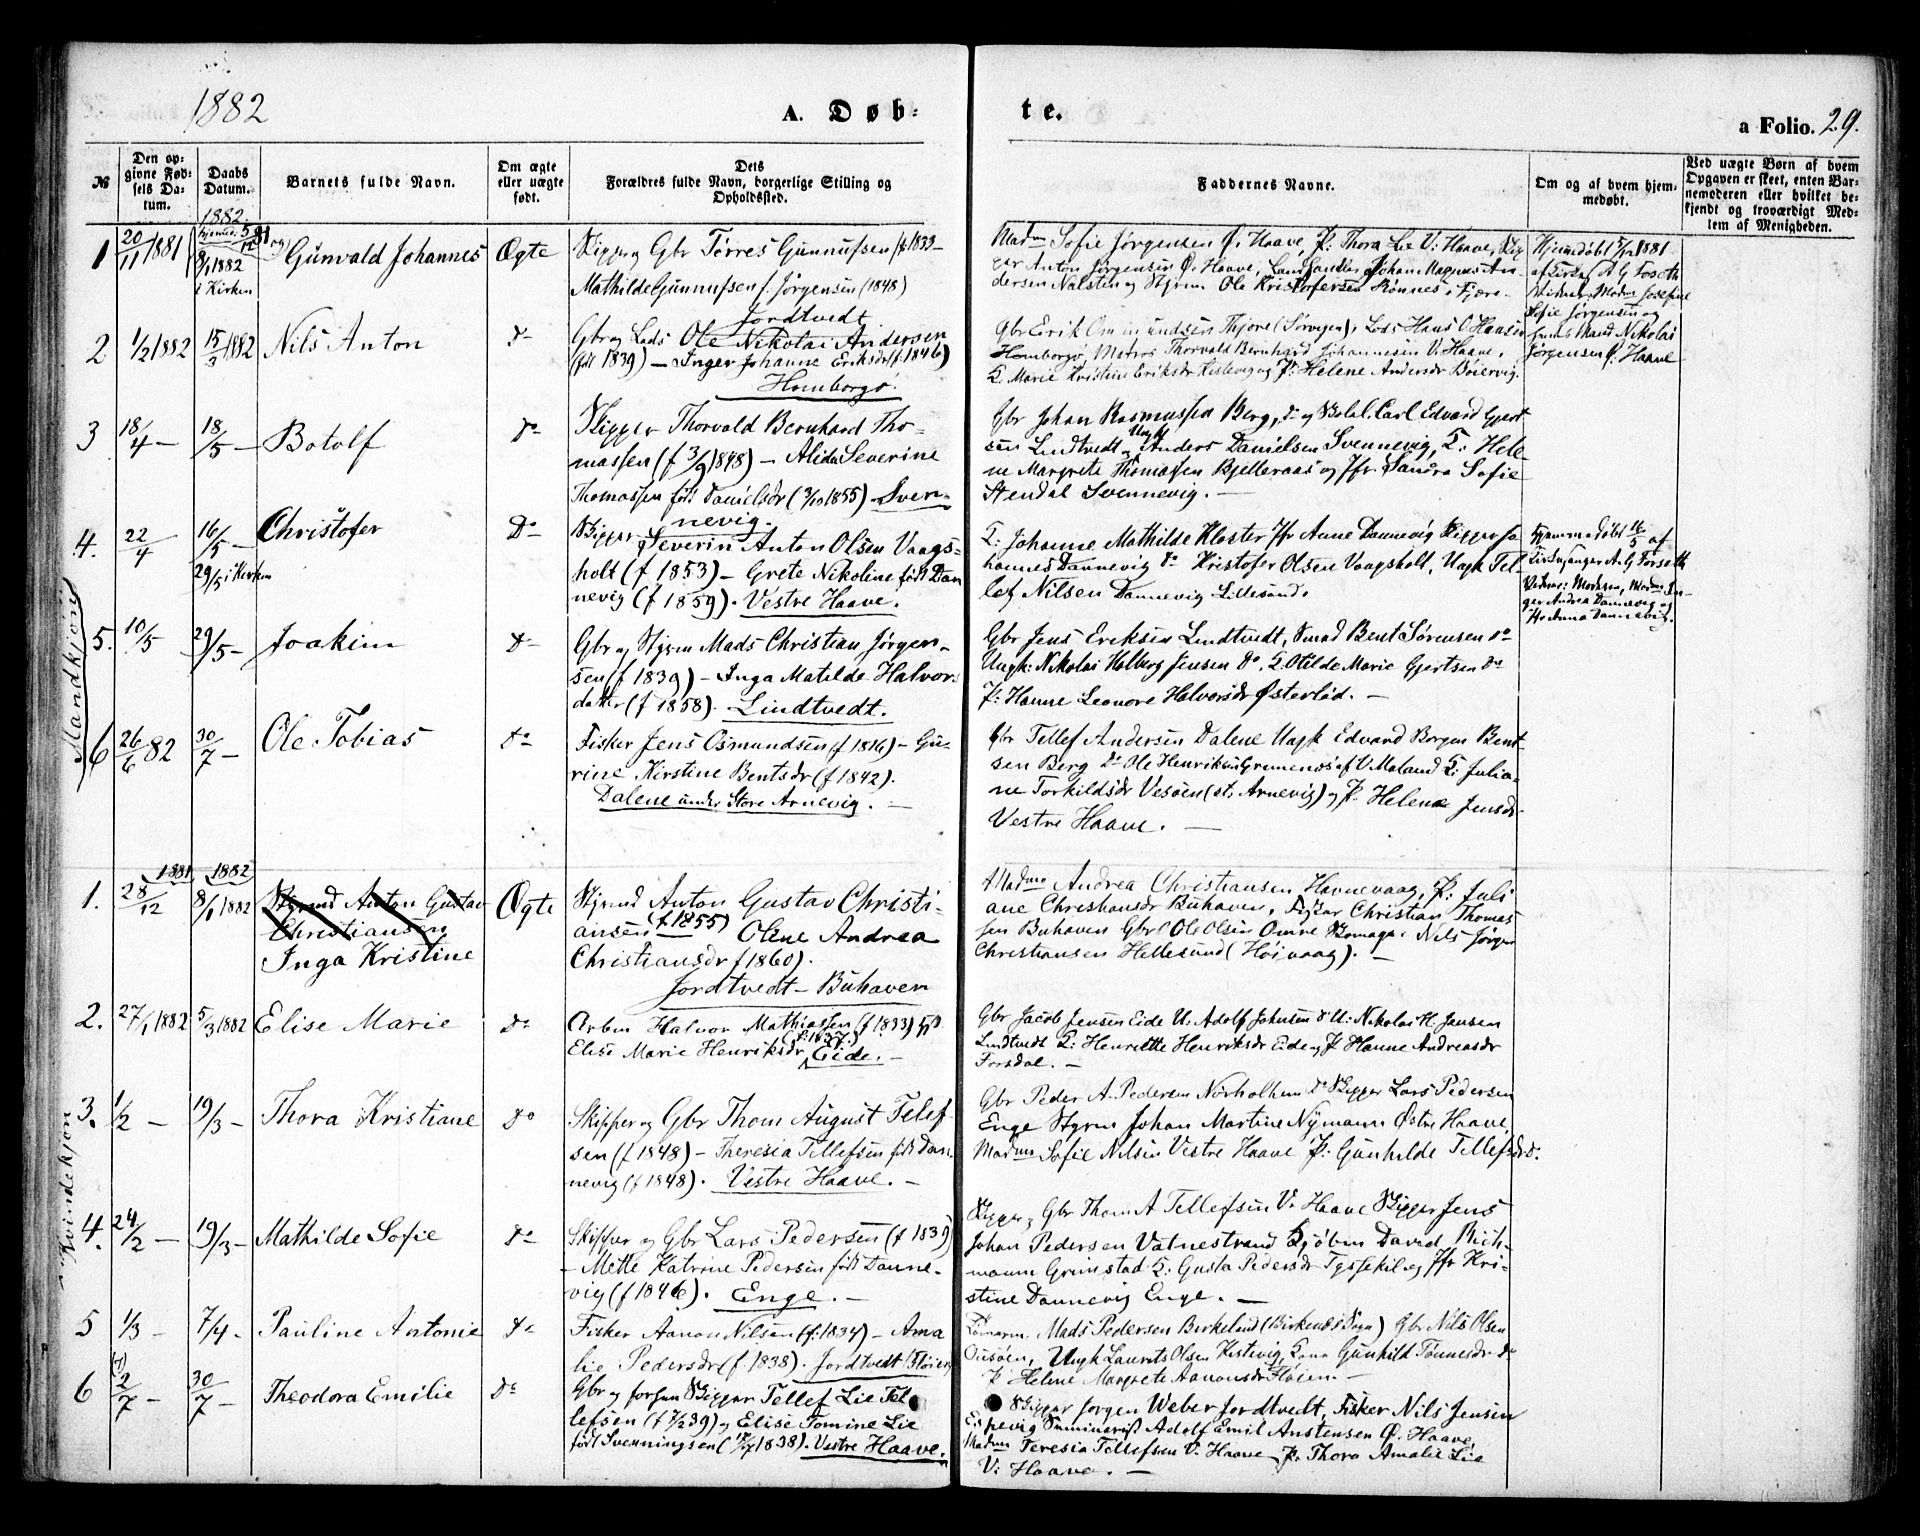 1882
A. Døb-
te.
a Folio. 29.
№
Den op-
givne Fød-
sels Da-
tum.
Daabs
Datum.
Barnets fulde Navn.
Om ægte
eller uægte
født.
Dets
Forældres fulde Navn, borgerlige Stilling og
Opholdssted.
Faddernes Navne.
Om og af hvem hjem-
medøbt.
Ved uægte Børn af hvem
Opgaven er skeet, enten Bar-
nemoderen eller hvilket be-
kjendt og troværdigt Med-
lem af Menigheden.
Mandkjøn
1882.
1 20/11 1881
8/1 1882
i Kirken
Gunvald Johannes Ægte
Skipper og Gbr Tørres Gunnufsen (f. 1833 -
Mathilde Gunnufsen f. Jørgensen (1848)
Jordtvedt
Madm Sofie Jørgensen Ø. Haave, P. Thora Lie V. Haave, Skip
per Anton Jørgensen Ø. Haave, Landhandler Johan Magnus An-
dersen Nalsten og Styrm Ole Kristofersen Rønnes i Fjære
Hjemmedøbt 5/12 1881
af Kirkes. A G Foseth
Vidner: Madm Josefine
Sofie Jørgensen og
hendes Mand Nikolai
Jørgensen Ø. Haave
2 1/2 1882 15/3 1882 Nils Anton do
Gbr og Lods Ole Nikolai Andersen
(født 1839) - Inger Johanne Eriksdr (f. 1846)
Homborgø.
Gbr Erik Ommundsen Thjore (Sørvegen), Lods Hans O Hansen
Homborgø, Matros Thorvald Bernhard Johannesen V. Haave,
K. Marie Kristine Eriksdr Kistevig og P. Helene Andersdr Bøiervig.
3 18/4 - 18/5 - Botolf do
Skipper Thorvald Bernhard Tho-
massen (f 3/9 1848) - Alida Severine
Thomassen født Danielsdr (3/10 1855) - Sven-
nevig.
Gbr Johan Rasmussen Berg, do og Bolel. Carl Edvard Gjert
sen Lindtvedt Ungk Anders Danielsen Svennevig, K. Hele
ne Margrete Thomassen Bjelleraas og Jfr Sandra Sofie
Stendal Svennevig. -
4. 22/4 16/5 - Christofer Do
29/5 i Kirken
Skipper Severin Anton Olsen Vaags-
holt (f 1853) - Grete Nikoline født Dan
nevig (f 1859). Vestre Haave.
K. Johanne Mathilde Kloster Jfr Anne Dannevig Skipper Jo
hannes Dannevig do Kristofer Olsen Vaagsholt, Ungk Tel-
lef Nilsen Dannevig Lillesand.
Hjemmedøbt 16/5 af
Kirkesanger A. G Forseth
Vidner: Moderen, Madm In-
ger Andrea Dannevig og
Anna Dannevig.
5. 10/5 29/5 - Joakim do
Gbr og Styrm Mads Christian Jørgen-
sen (f 1839) - Inga Matilde Halvors
datter (f 1858). Lindtvedt.
Gbr Jens Eriksen Lindtvedt, Smed Bent Sørensen do
Ungk: Nikolai Holberg Jensen do, K. Otilde Marie Gjertsen do
P. Hanne Leonore Halvorsdr Østerlid. -
6 26/6 82 30/7 - Ole Tobias do
Fisker Jens Osmundsen (f 1816) - Gu-
rine Kirstine Bentsdr (f 1842).
Dalene under Store Arnevig. -
Gbr Tellef Andersen Dalene Ungk Edvard Borgen Bent-
sen Berg do Ole Henriksen Grennenes af V. Moland K. Julia-
ne Torkildsdr Vesøen (st. Arnevig) og P. Helene Jensdr
Vestre Haave. -
Kvindekjøn
1881 1882
1. 28/12 8/1 1882
Styrmd Anton Gustav
Christiansen
Inga Kristine
Ægte
Styrmd Anton Gustav Christi-
ansen (f 1855) Olene Andrea
Christiansdr f 1860).
Jordtvedt - Buhaven
Madm Andrea Christiansen Havnevaag, P. Juli
ane Christiansdr Buhaven, Fisker Christian Thomas
sen Buhaven Gbr Ole Olsen Omre Nils Jørgen
Christiansen Hellesund (Høivaag). -
2. 27/1 1882 5/3 1882 Elise Marie do
Arbm Halvor Mathiassen (f 1833) og
Elise Marie Henriksdr (f. 1837.) Eide. -
Gbr Jacob Jensen Eide U: Adolf Johnsen do U: Nikolai H. Jansen
Lindtvedt K: Henriette Henriksdr Eide og P. Hanne Andreasdr
Forsdal. -
3. 1/2 - 19/3 - Thora Kristiane do
Skipper og Gbr Thom August Tellef-
sen (f 1848) - Theresia Tellefsen født Dan
nevig (f 1848). Vestre Haave. -
Gbr Peder A. Pedersen Nørholhem do Skipper Lars Pedersen
Enge Styrm Johan Martine Nymann Østre Haave,
Madm Sofie Nilsen Vestre Haave P. Gunhilde Tellefsdr do.
4. 24/2 - 19/3 - Mathilde Sofie do
Skipper og Gbr Lars Pedersen (f 1839)
- Mette Katrine Pedersen født Danne-
vig (f 1846). Enge. -
Skipper og Gbr Thom A Tellefsen V. Haave Skipper Jens
Johan Pedersen Vatnestrand Kjøbm David Rich-
mann Grimstad K. Gusta Pedersdr Tyssekil og Jfr Kri-
stine Dannevig Enge. -
5 1/3 - 7/4 - Pauline Antonie do
Fisker Aanon Nilsen (f. 1834) - Ama
lie Pedersdr (f. 1838). Jordtvedt (Fløien)
Mads Pedersen Birkeland (Birkenæs Sogn) Gbr Nils Olsen
Ousøen, Ungk Laurits Olsen Kistevig, Kona Gunhild Tønnesdr do
P. Helene Margrete Aanonsdr Fløien. -
6 2/7 - 30/7 - Theodora Emilie do
Gbr og forhen Skipper Tellef Lie Tel
lefsen (f 7/2 39) og Elise Tomine Lie
født Svenningsen (1838). Vestre Haave.
Skipper Jørgen Weber Jordtvedt, Fisker Nils Jensen
Espevig Seminarist Adolf Emil Anstensen Ø. Haave,
Madm Teresia Tellefsen V. Haave P. Thora Amalie Lie
V. Haave. -